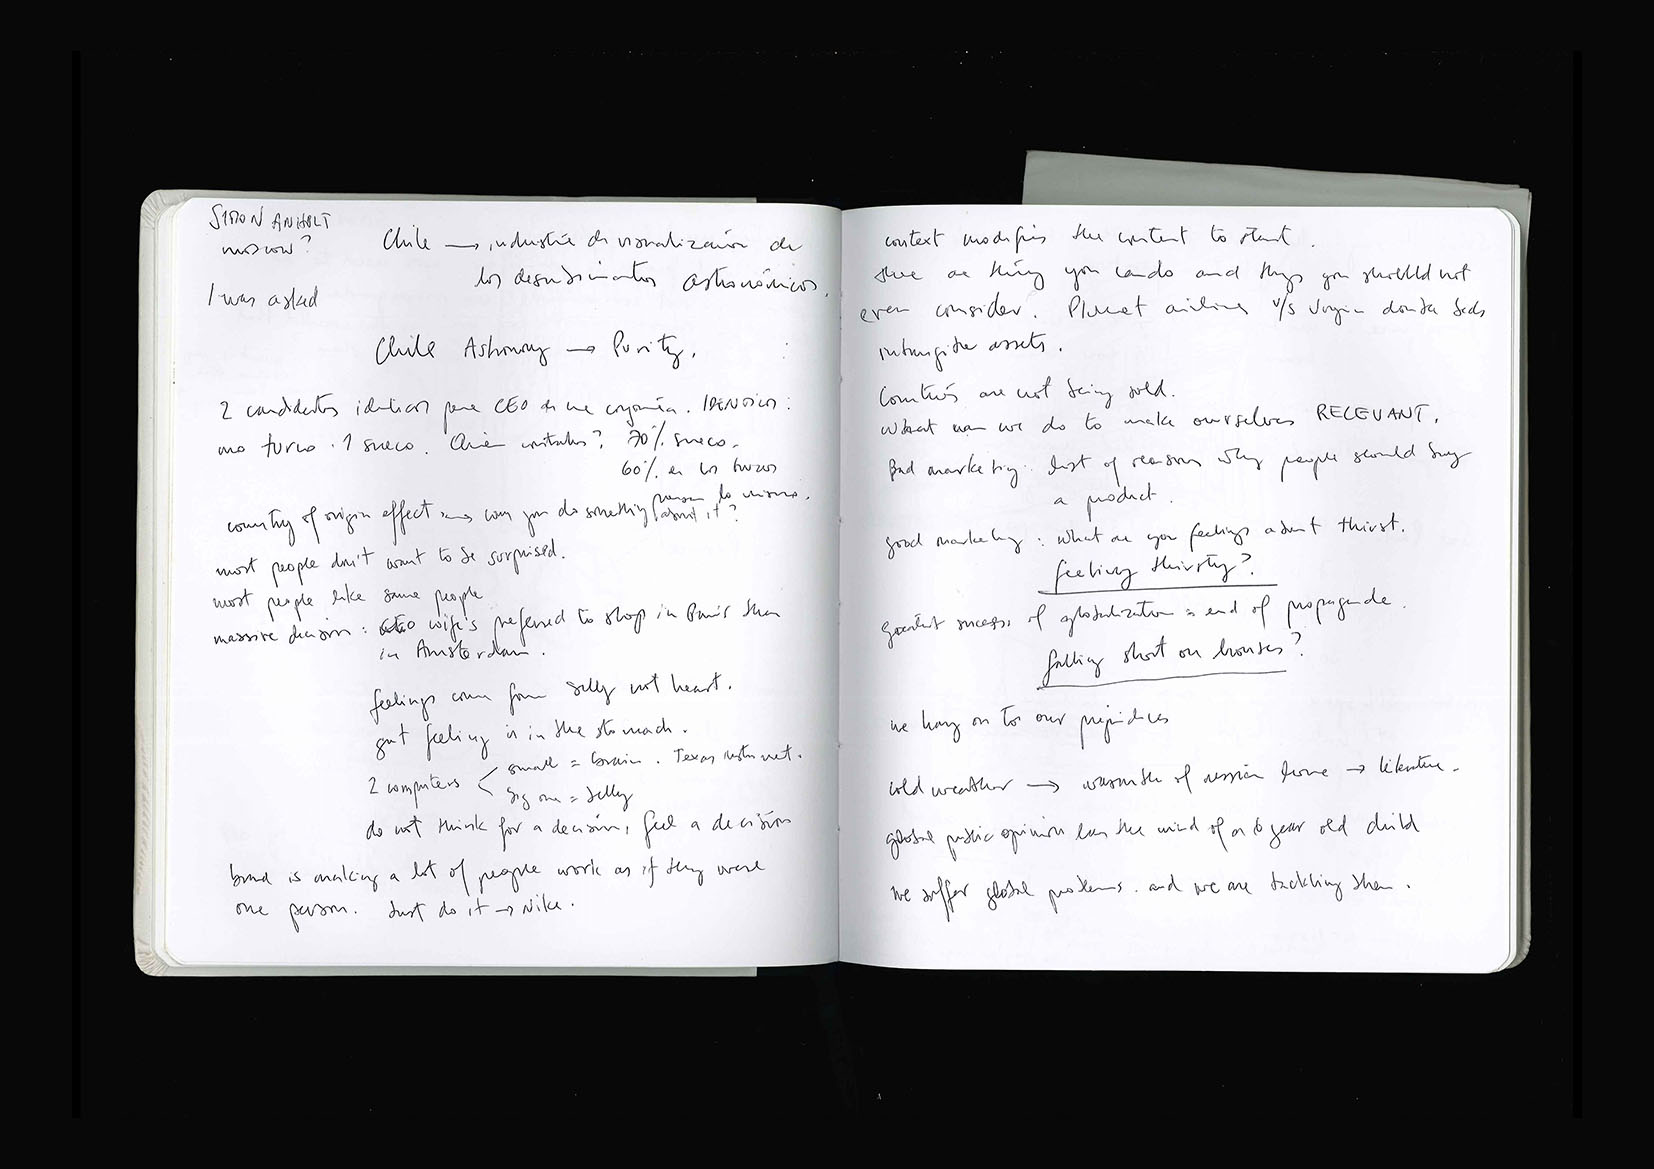 SIMON ANHOLT
moscow?
Chile → industria de visualización de
los descubrimientos astronómicos.
I was asked
Chile Astronomy → Purity.
2 candidatos identicos para CEO de una compañía. IDENTICOS:
uno turco. 1 sueco. Quién contratas? 70% sueco.
60% en los turcos
piensan lo mismo.
country of origin effect → can you do something about it?
most people don't want to be surprised.
most people like same people
massive decision: CEO wife's preferred to shop in Paris than
in Amsterdam.
feelings come from belly not heart.
gut feeling is in the stomach.
2 computers < small = brain. Texas instrument.
big one = belly
do not think for a decision, feel a decision
brand is making a lot of people work as if they were
one person. Just do it → Nike.
context modifies the content to start.
there are things you can do and things you should not
even consider. airlines v/s Virgin
intangible assets.
Countries are not being sold.
What can we do to make ourselves RELEVANT.
Bad marketing: list of reasons why people should buy
a product.
good marketing: what are your feelings about thirst.
feeling thirsty?
greatest success of globalization = end of propaganda.
falling short on houses?
we hang on to our prejudices
cold weather → warmth of russian home → literature.
global public opinion has the mind of a 6 year old child
we suffer global problems. and we are tackling them.